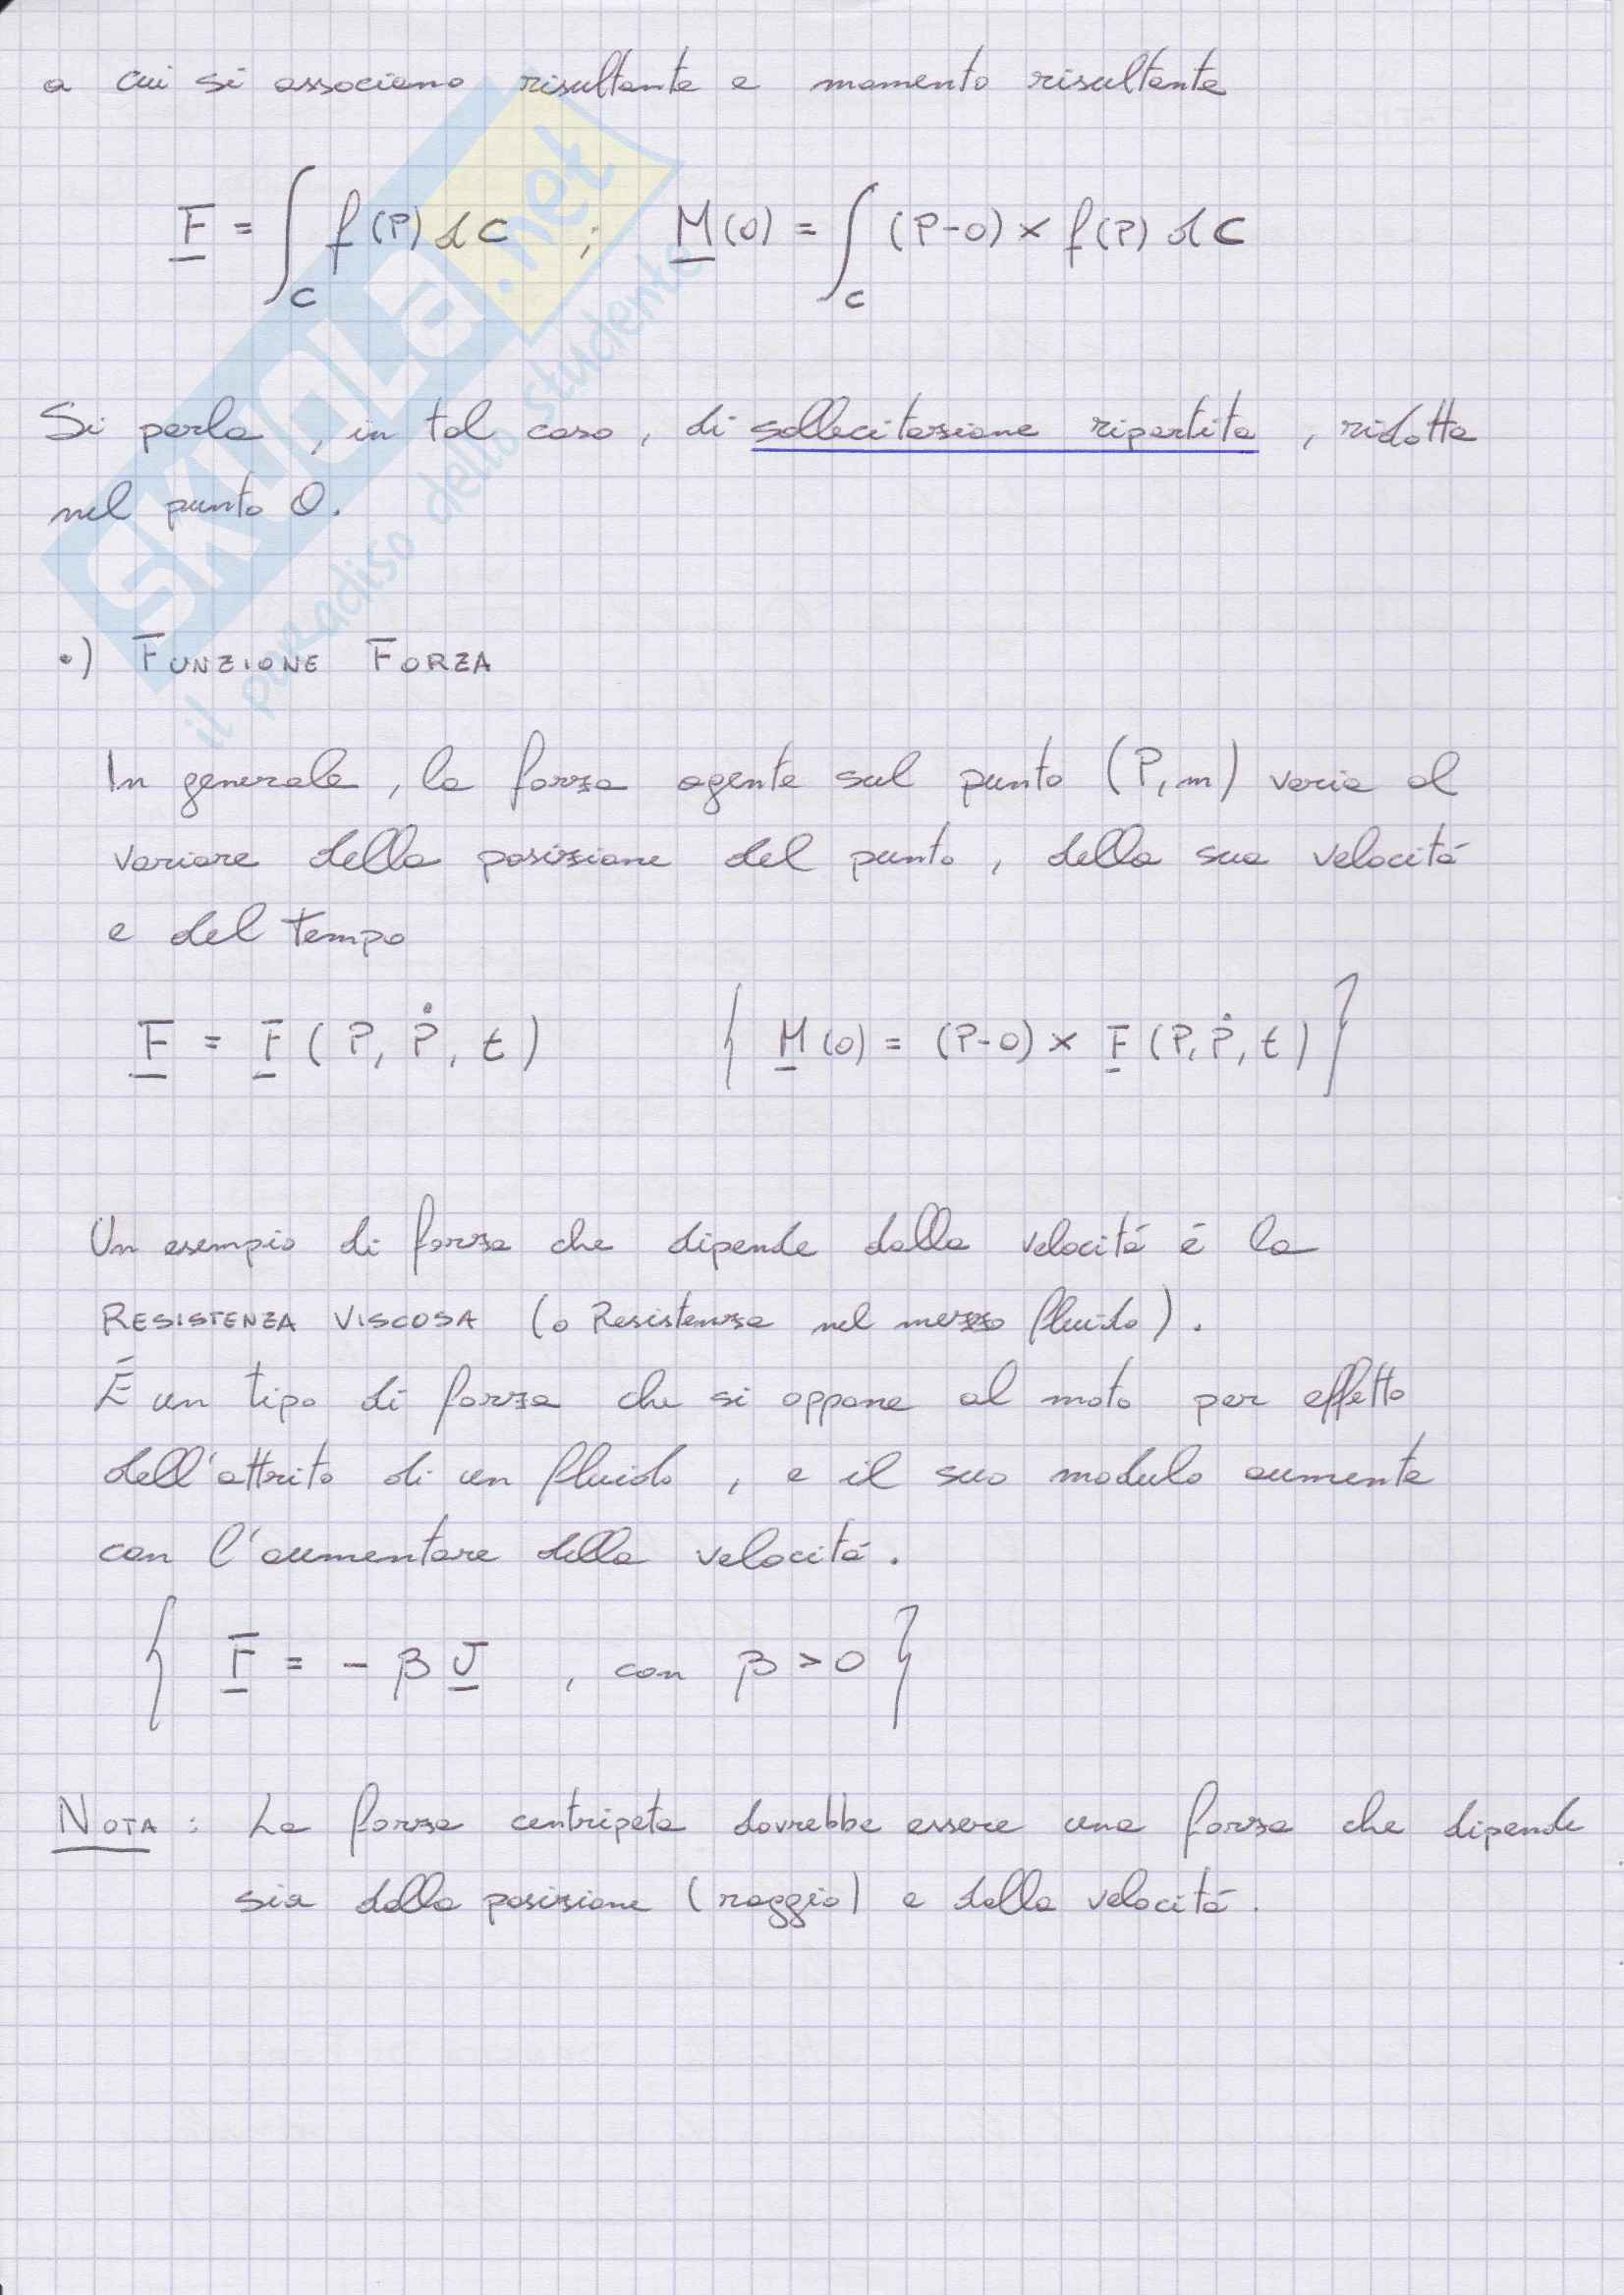 a cui si associano risultante e momento risultante
F = ∫_C f(P) dC ; M(O) = ∫_C (P-O) × f(P) dC
Si parla, in tal caso, di sollecitazione ripartita, ridotta
nel punto O.
•) FUNZIONE FORZA
In generale, la forza agente sul punto (P, m) varia al
variare della posizione del punto, della sua velocitá
e del tempo
F = F (P, Ṗ, t) { M(O) = (P-O) × F (P, Ṗ, t) }
Un esempio di forza che dipende dalla velocitá é la
RESISTENZA VISCOSA (o Resistenza nel mezzo fluido).
É un tipo di forza che si oppone al moto per effetto
dell'attrito di un fluido, e il suo modulo aumenta
con l'aumentare della velocitá.
{ F = - β v, con β > 0 }
NOTA: La forza centripeta dovrebbe essere una forza che dipende
sia dalla posizione (raggio) e dalla velocitá.
SKUOLa.net
il paradiso dello studente